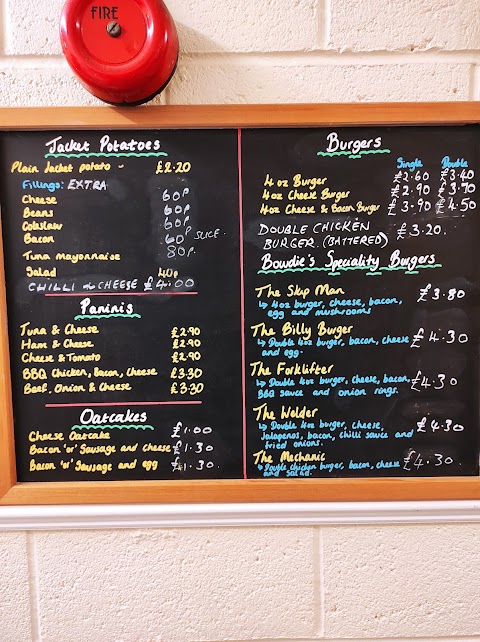 FIRE
Jacket Potatoes
Plain Jacket potato - £2.20
Fillings: EXTRA
Cheese 60p
Beans 60p
Coleslaw 60p
Bacon 60p SLICE.
Tuna Mayonnaise 80p.
Salad 40p
CHILLI CHEESE £4.00
Paninis
Tuna & Cheese £2.90
Ham & Cheese £2.90
Cheese & Tomato £2.90
BBQ Chicken, Bacon, Cheese £3.30
Beef, Onion & Cheese £3.30
Oatcakes
Cheese Oatcake £1.00
Bacon 'or' Sausage and Cheese £1.30
Bacon 'or' Sausage and egg £1.30.
Burgers
Single Double
4oz Burger £2.60 £3.40
4oz Cheese Burger £2.90 £3.70
4oz Cheese & Bacon Burger £3.90 £4.50
DOUBLE CHICKEN
BURGER. (BATTERED) £3.20.
Bowdie's Speciality Burgers
The Skip Man £3.80
↳ 4oz burger, cheese, bacon,
egg and mushrooms
The Billy Burger £4.30
↳ Double 4oz burger, bacon, cheese
and egg.
The Forklifter £4.30
↳ Double 4oz burger, cheese, bacon,
BBQ sauce and onion rings.
The Welder £4.30
↳ Double 4oz burger, cheese,
Jalapenos, bacon, chilli sauce and
fried onions.
The Mechanic £4.30.
↳ Double chicken burger, bacon, cheese
and salad.